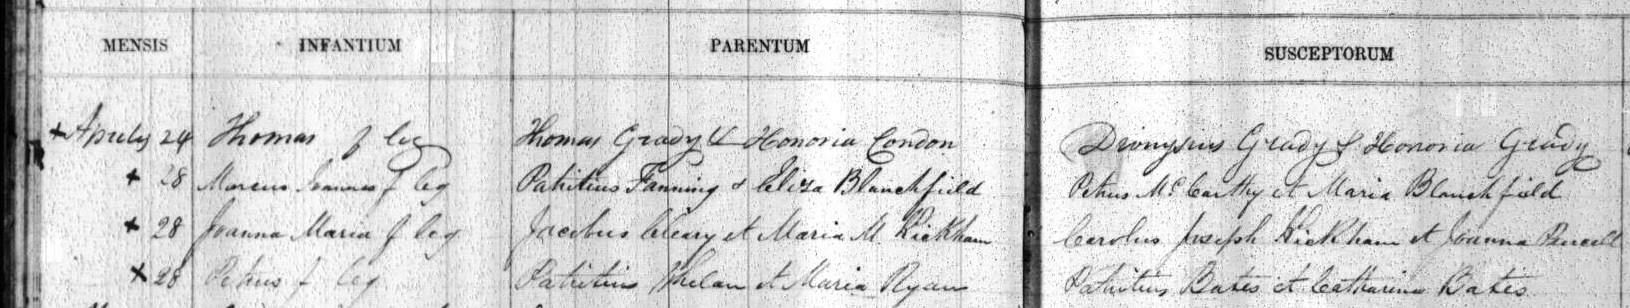 MENSIS INFANTIUM PARENTUM SUSCEPTORUM
+ Aprilis 24 Thomas f leg Thomas Grady & Honoria Condon Dionysius Grady & Honoria Grady
+ 28 Marcus Joannes f leg Patritius Fanning & Eliza Blanchfield Petrus McCarthy et Maria Blanchfield
+ 28 Joanna Maria f leg Jacobus Cleary et Maria M Kickham Carolus Joseph Kickham et Joanna Purcell
+ 28 Petrus f leg Patritius Whelan et Maria Ryan Patritius Bates et Catharina Bates